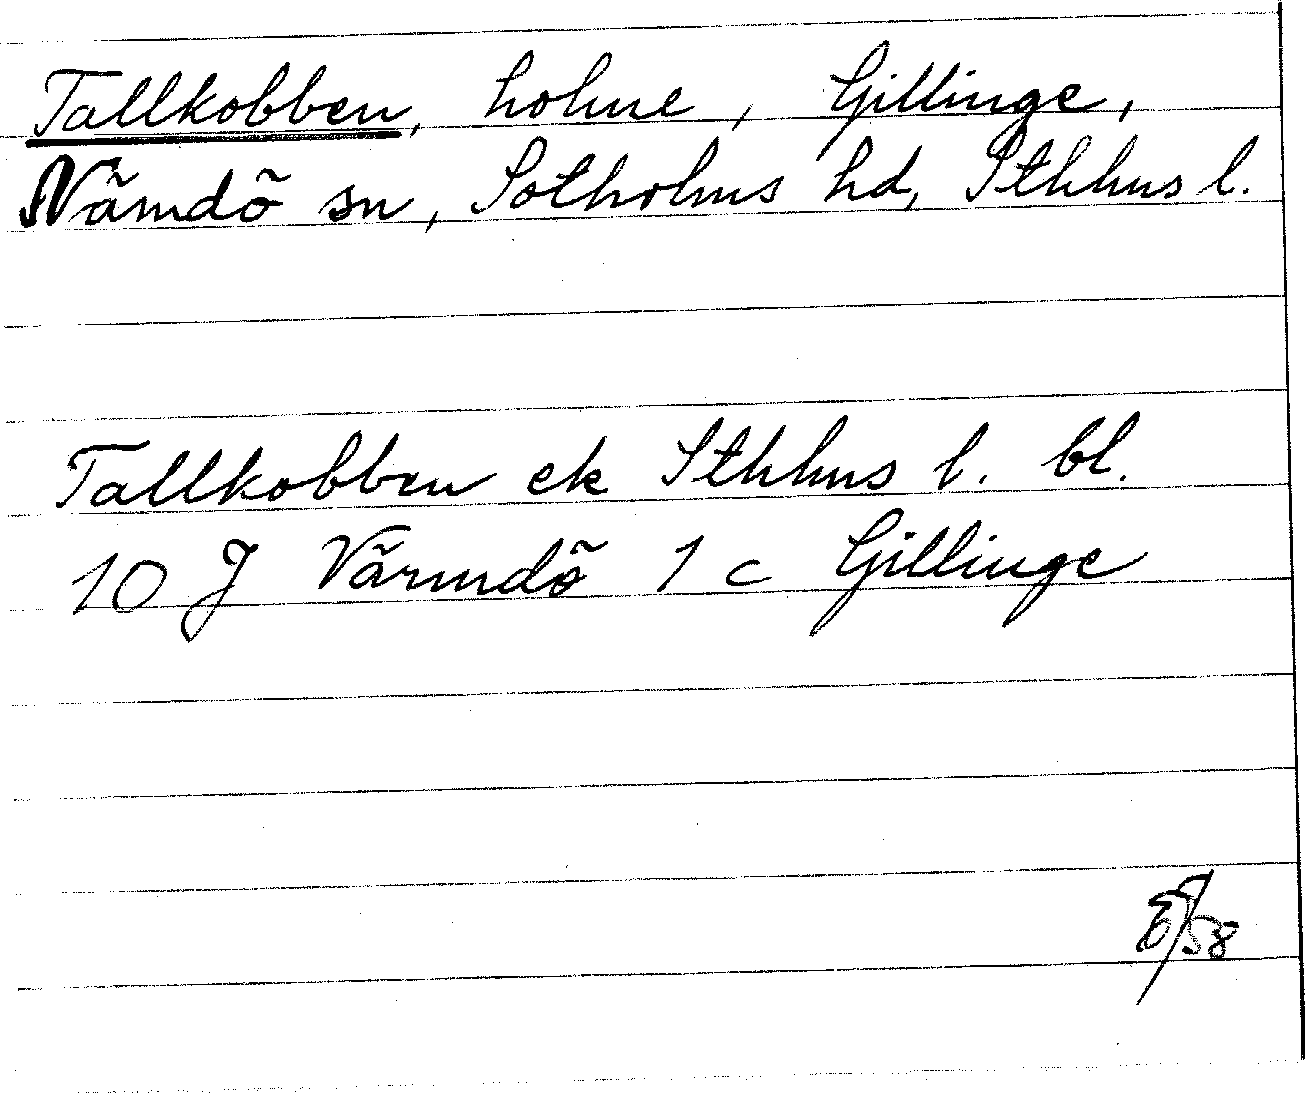 Tallkobben, holme, Gillinge,
Nämdö sn, Sotholms hd, Sthlms l.
Tallkobben ek Sthlms l. bl.
10 J Värmdö 1 c Gillinge
/58